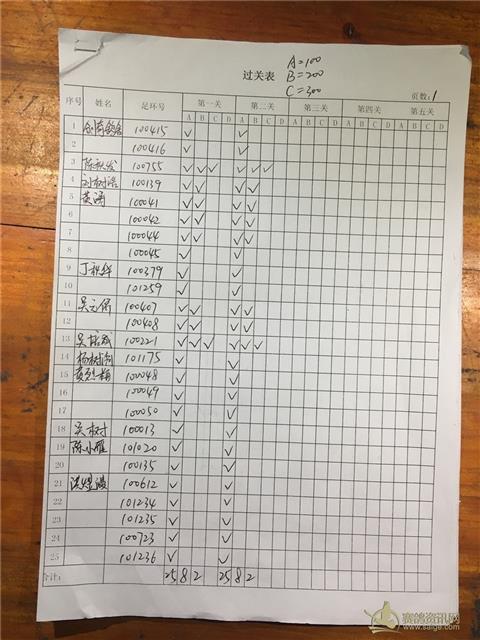 过关表
A=100
B=200
C=300
页数:1
序号 姓名 足环号 第一关 第二关 第三关 第四关 第五关
A B C D A B C D A B C D A B C D A B C D
1 100415
2 100416
3 100755
4 100139
5 100041
6 100042
7 100044
8 100045
9 100379
10 101259
11 100407
12 100408
13 100221
14 101175
15 100048
16 100049
17 100050
18 100013
19 陈小雁 101020
20 100135
21 100612
22 101234
23 101235
24 100723
25 101236
合计: 25 8 2 25 8 2
赛鸽资讯网
www.saige.com